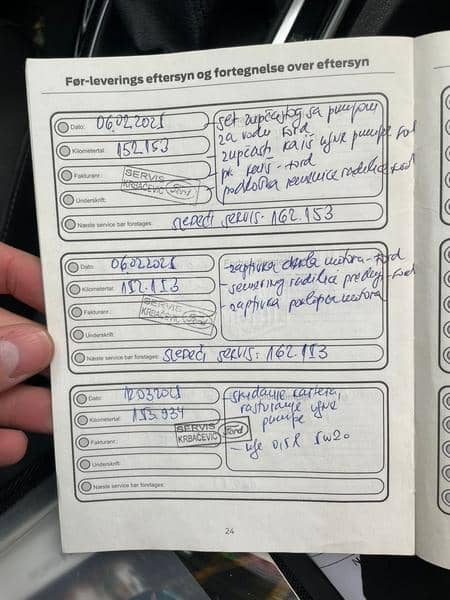 Før-leverings eftersyn og fortegnelse over eftersyn
Dato: 06.02.2021
Kilometertal: 152.153
Fakturanr.:
SERVIS
KRBAČEVIĆ Ford
Underskrift:
- set zupčastog sa pumpom
za vodu Ford
- zupčasti kaiš uljne pumpe Ford
- pk kaiš - Ford
- podloška remenice radilice - Ford
Næste service bør foretages: SLEDEĆI SERVIS: 162.153
Dato: 06.02.2021
Kilometertal: 152.153
Fakturanr.:
SERVIS
KRBAČEVIĆ Ford
Underskrift:
- zaptivka motora - Ford
- semering radilice prednji - Ford
- zaptivka motora
Næste service bør foretages: SLEDEĆI SERVIS: 162.153
Dato: 12.03.2021
Kilometertal: 153.934
Fakturanr.:
SERVIS
KRBAČEVIĆ Ford
Underskrift:
- skidanje kartera,
uljne
pumpe
- ulje 0,5 5w20
Næste service bør foretages:
24